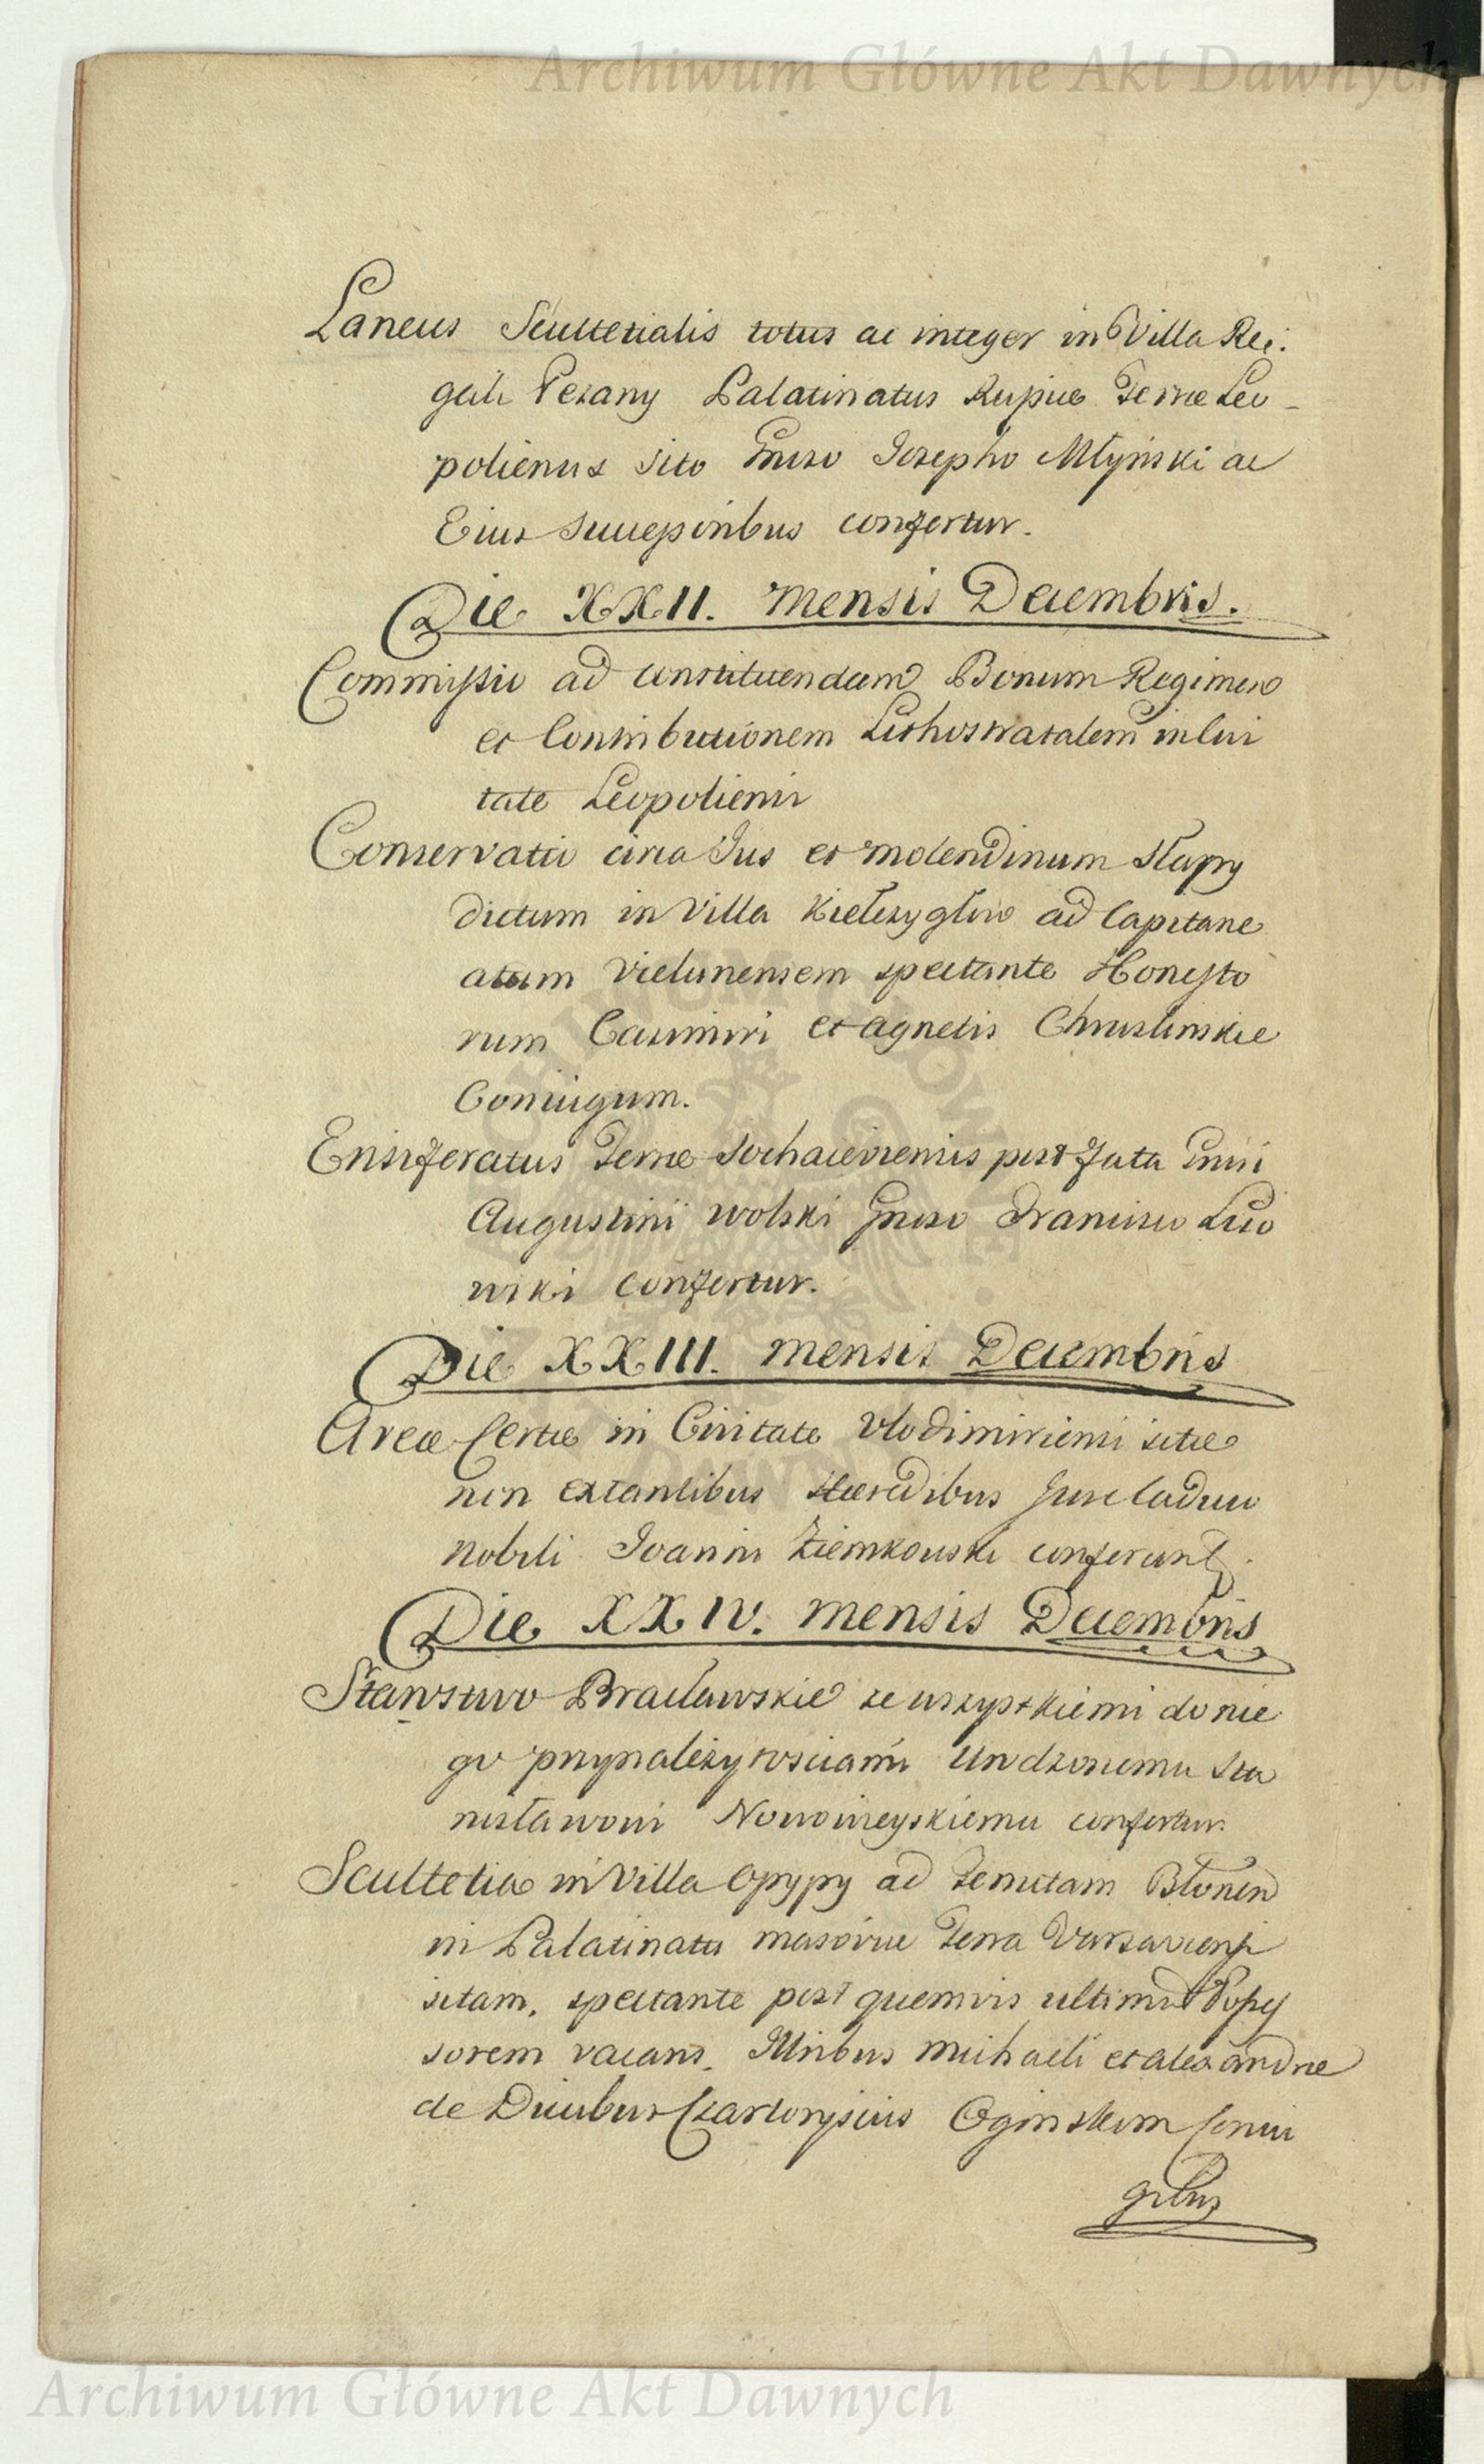 Archiwum Główne Akt Dawnych
Laneus Scultetialis totus ac integer in Villa Re:
gali Pezany Palatinatus Russiæ Terræ Leo-
poliensis sito Gnroso Josepho Młynski ac
Eius Successoribus confertur.
Die XXII. mensis Decembris.
Commissio ad constituendam Bonum Regimen
et Contributionem Lithostratalem in Civi
tate Leopoliensi
Conservatio circa Jus et molendinum Stapy
dictum in Villa Kiełczygłow ad Capitane
atum Vielunensem spectante Honesto
rum Casimiri et Agnetis Chruslinskie
Coniugum.
Ensiferatus Terræ Sochaceviensis post Fata Gnsi
Augustini Wolski Gnroso Francisco Luo
wiki confertur.
Die XXIII. mensis Decembris
Areæ Certæ in Civitate Vlodimiriensi sitæ
non extantibus Hæredibus Jure Caduco
Nobili Joanni Ziemkowski conferunt
Die XXIV. mensis Decembris
Starostwo Bracławskie ze wszystkiemi do nie
go przynależytosciami Urodzonemu Sta
nisławowi Nowowieyskiemu confertur.
Scultetia in Villa Opypy ad Tenutam Błonen
in Palatinatu Masoviæ Terra Varsaviensi
sitam, spectante post quemvis ultimum Posses
sorem vacans. Illribus Michaeli et Alexandræ
de Ducibus Czartorysciis Oginskim Coniu
gibus
Archiwum Główne Akt Dawnych